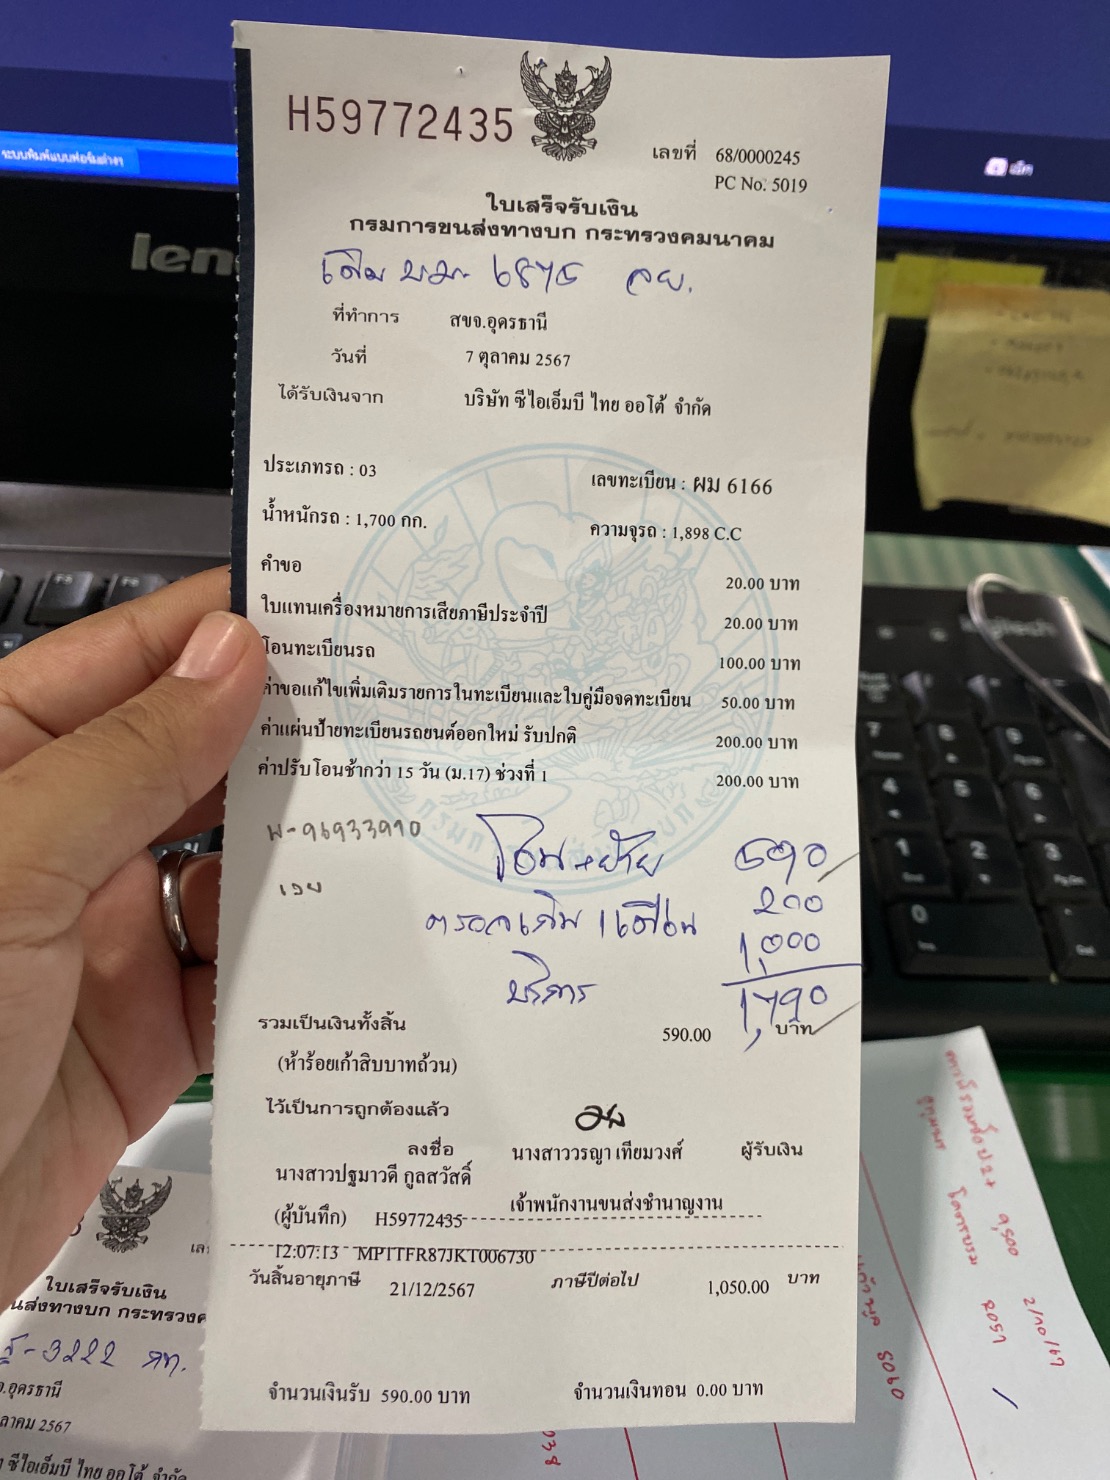 ระบบพิมพ์แบบฟอร์มต่างๆ
len
H59772435
เลขที่ 68/0000245
PC No. 5019
ใบเสร็จรับเงิน
กรมการขนส่งทางบก กระทรวงคมนาคม
เดิม 6875 ลย.
ที่ทำการ สขจ.อุดรธานี
วันที่ 7 ตุลาคม 2567
ได้รับเงินจาก บริษัท ซีไอเอ็มบี ไทย ออโต้ จำกัด
ประเภทรถ : 03 เลขทะเบียน : ผม 6166
น้ำหนักรถ : 1,700 กก. ความจุรถ : 1,898 C.C
คำขอ 20.00 บาท
ใบแทนเครื่องหมายการเสียภาษีประจำปี 20.00 บาท
โอนทะเบียนรถ 100.00 บาท
ค่าขอแก้ไขเพิ่มเติมรายการในทะเบียนและใบคู่มือจดทะเบียน 50.00 บาท
ค่าแผ่นป้ายทะเบียนรถยนต์ออกใหม่ รับปกติ 200.00 บาท
ค่าปรับโอนช้ากว่า 15 วัน (ม.17) ช่วงที่ 1 200.00 บาท
พ-96933910
โอน+ย้าย 590
เลย
200
1,000
บริการ 1,790
รวมเป็นเงินทั้งสิ้น 590.00 บาท
(ห้าร้อยเก้าสิบบาทถ้วน)
ไว้เป็นการถูกต้องแล้ว
ลงชื่อ นางสาววรญา เทียมวงศ์ ผู้รับเงิน
นางสาวปฐมาวดี กูลสวัสดิ์
เจ้าพนักงานขนส่งชำนาญงาน
(ผู้บันทึก) H59772435
12:07:13 MP1TFR87JKT006730
วันสิ้นอายุภาษี 21/12/2567 ภาษีปีต่อไป 1,050.00 บาท
จำนวนเงินรับ 590.00 บาท จำนวนเงินทอน 0.00 บาท
ใบเสร็จรับเงิน
นส่งทางบก กระทรวงค
3222 กท.
.อุดรธานี
ลาคม 2567
ซีไอเอ็มบี ไทย ออโต้ จำกัด
9,500
2/10/67